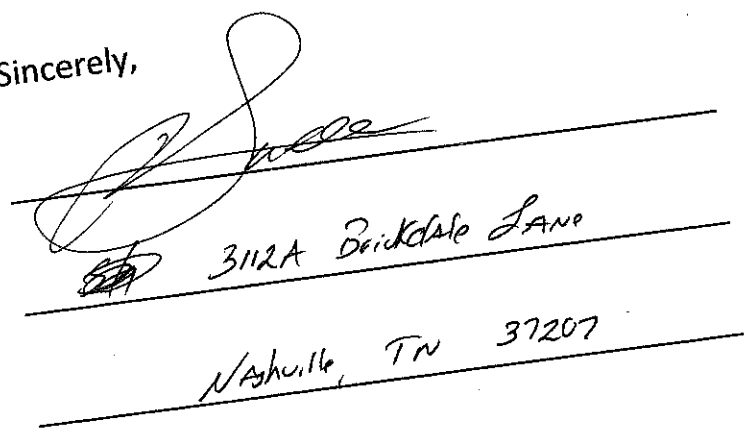 Sincerely,
3112A Brickdale Lane
Nashville, TN 37207